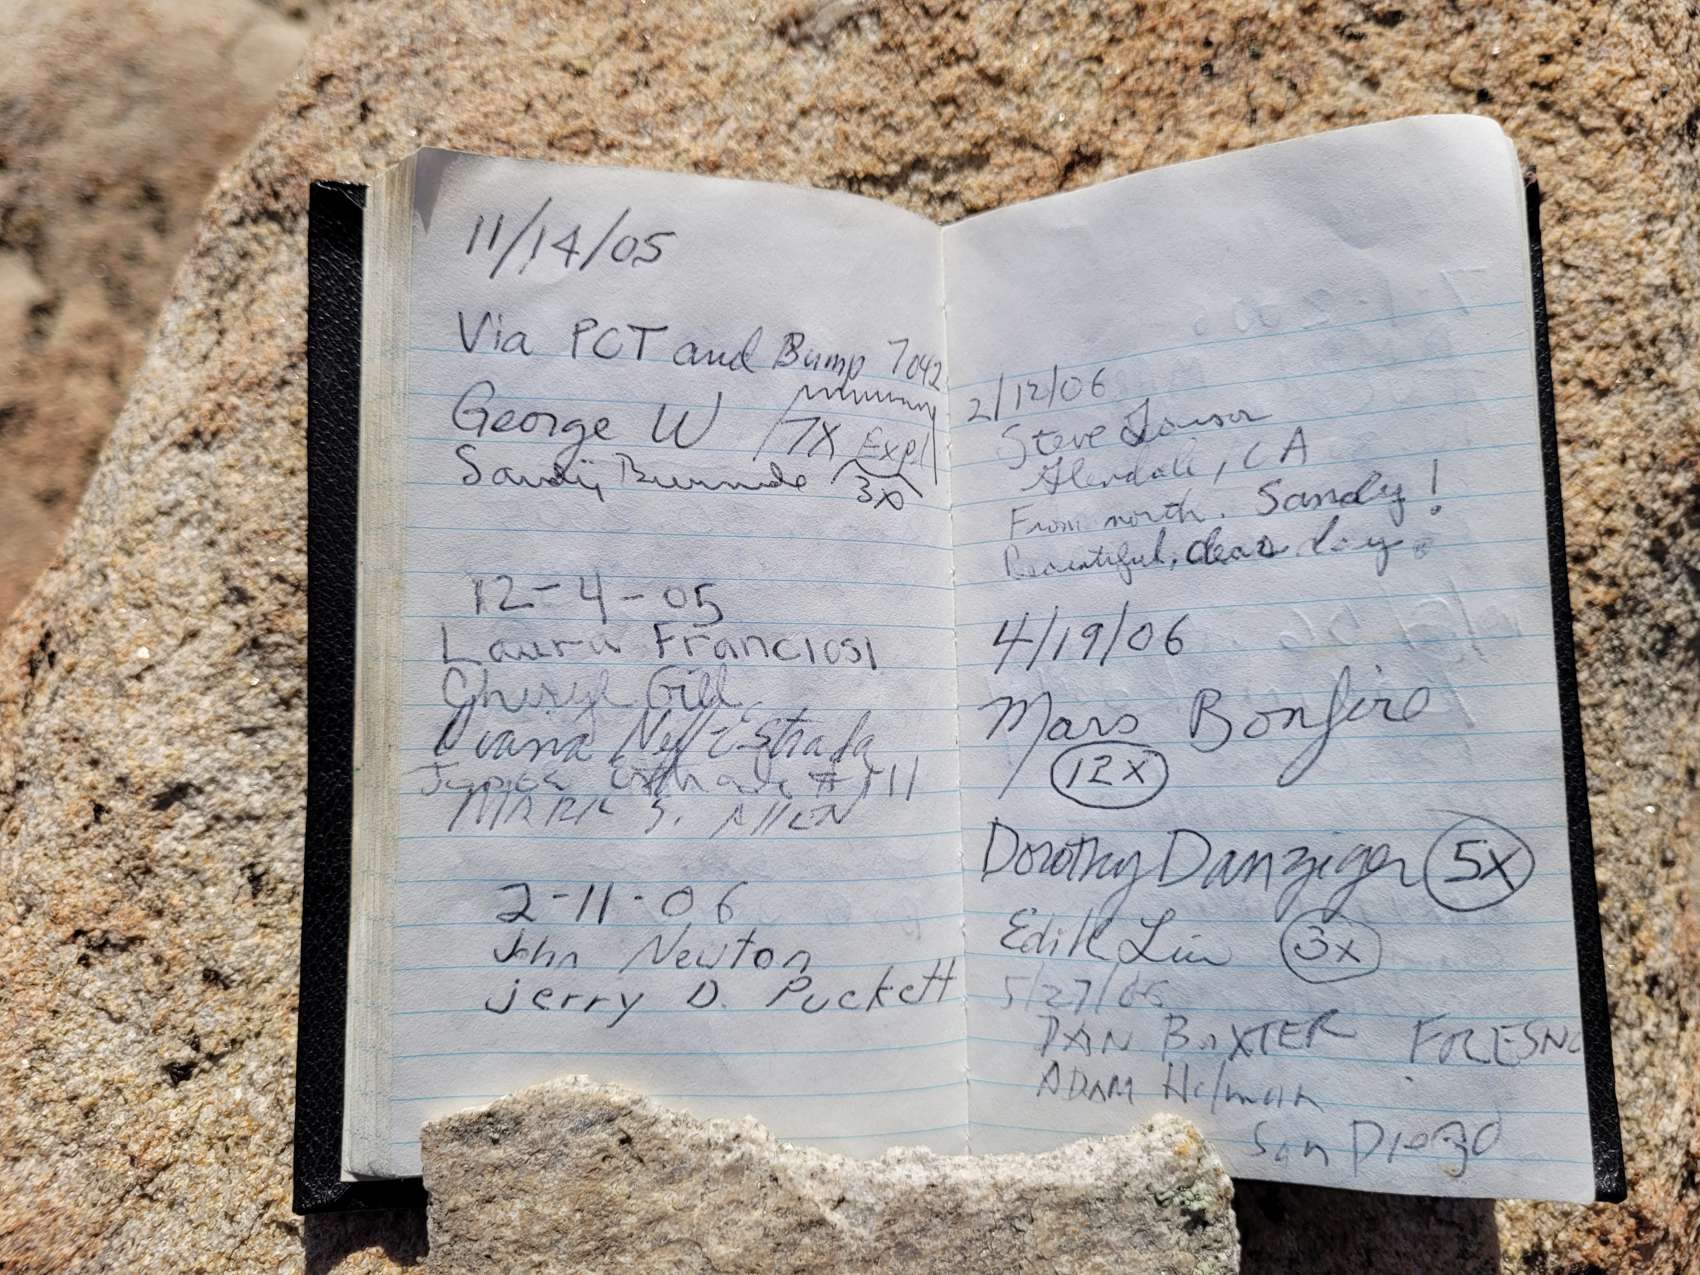 11/14/05
Via PCT and Bump 7042
George W 7X Expl
Sandy 3x
12-4-05
Laura Franciosi
Cheryl Gill
Diana Neff Estrada
MARK S. AllEN
2-11-06
John Newton
Jerry D. Puckett
2/12/06
Steve
Glendale, CA
From north. Sandy!
Beautiful, clear day.
4/19/06
Mars Bonfire
12x
Dorothy Danziger 5x
Edith Liu 3x
5/27/06
DAN BAXTER FRESNO
ADAM Holman
San Diego